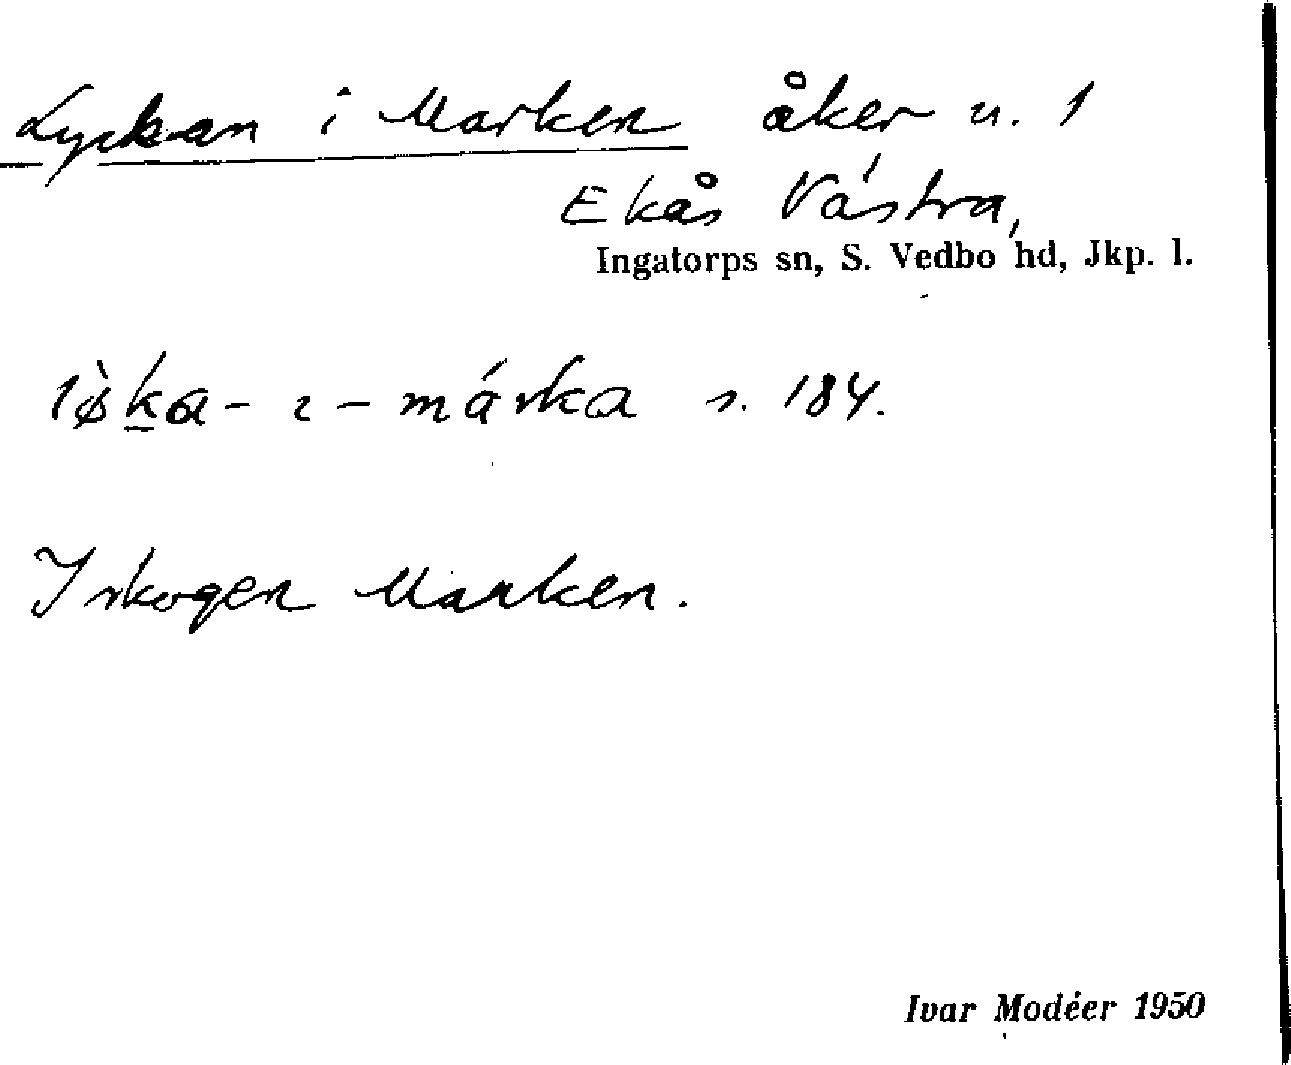 Lyckan i Marken åker u. 1
Ekås Västra,
Ingatorps sn, S. Vedbo hd, Jkp. l.
lø̀ka-ɩ-márka s. 184.
I skogen Marken.
Ivar Modéer 1950